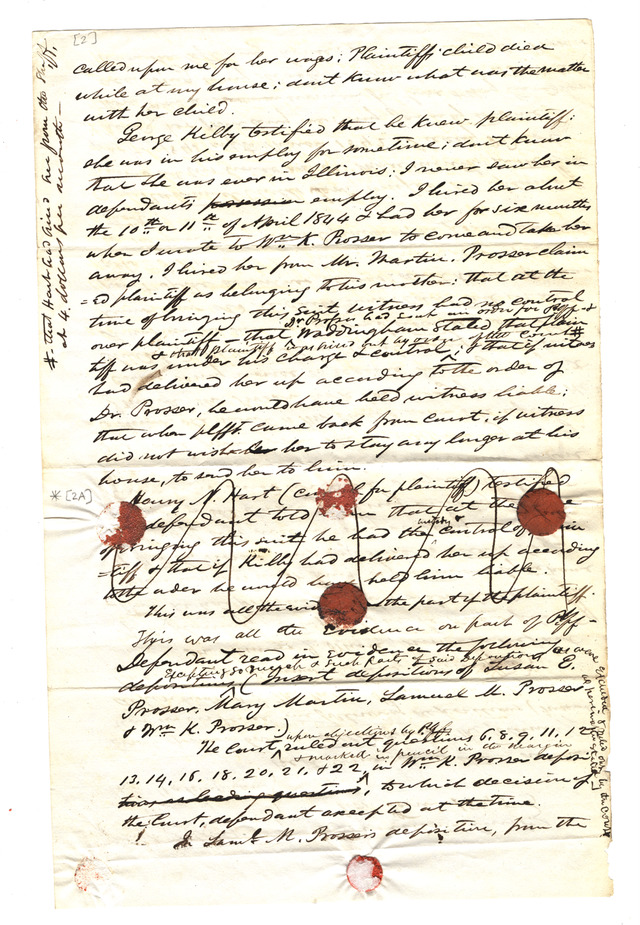 [2]
called upon me for her wages; Plaintiffs child died
while at my house; dont know what was the matter
with her child.
George Kilby testified that he knew plaintiff:
she was in his employ for sometime; dont know
that she was ever in Illinois; I never saw her in
defendants possession employ. I hired her about
the 10th or 11th of April 1844 & had her for six months
when I wrote to Wm K. Prosser to come and take her
away. I hired her from Mr. Martin. Prosser claim
=ed plaintiff as belonging to his mother: that at the
time of bringing this suit witness had no control
over plaintiff – that Waddingham stated that plain
Dr Prosser had sent an order for Plff &
tiff was under his charge & control, & that if witness
& that plaintiff was hired out by order of the Court #
had delivered her up according to the order of
Dr. Prosser, he would have held witness liable;
that when plfft. came back from court, if witness
did not wish her to stay any longer at his
house, to send her to him.
# that Hart had hired her from the Shff
at 4 dollars per month –
* [2A]
Harry N. Hart (called for plaintiff) testified
defendant told that at the time
of bringing this suit he had the control of plain
=tiff & that if Kilby had delivered her up according
to the order he would have held him liable.
This was all the evidence the part of the plaintiff.
This was all the Evidence on part of Plff –
Defendant read in evidence the following
depositions (insert depositions of Susan E.
Excepting so much & such parts of said depositions as were
excluded & ruled out by the court
Prosser, Mary Martin, Samuel M. Prosser
& Wm K. Prosser.)
The Court, ruled out questions 6, 8, 9, 11, 12
upon objections by Plff
& marked in pencil in the margin
13, 14, 16, 18, 20, 21, & 22, in Wm K. Prosser deposi
tion as leading questions, to which decision of
the Court, defendant excepted at the time.
In Saml M. Prossers deposition, from the